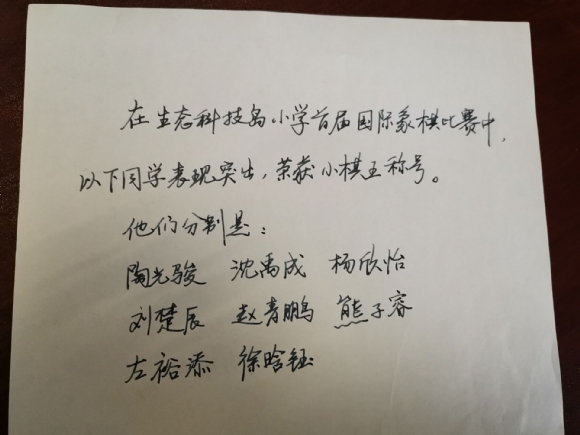 在生态科技岛小学首届国际象棋比赛中，
以下同学表现突出，荣获小棋王称号。
他们分别是：
陶光骏 沈禹成 杨欣怡
刘楚辰 赵青鹏 熊子睿
左裕添 徐晗钰